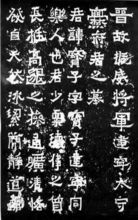 晉故振威將軍建寧太守
爨府君之墓
君諱寶子字寶子建寧同
樂人也君少稟瓌偉之質
長挺高邈之操通曠清恪
發自天然冰潔簡靜道兼